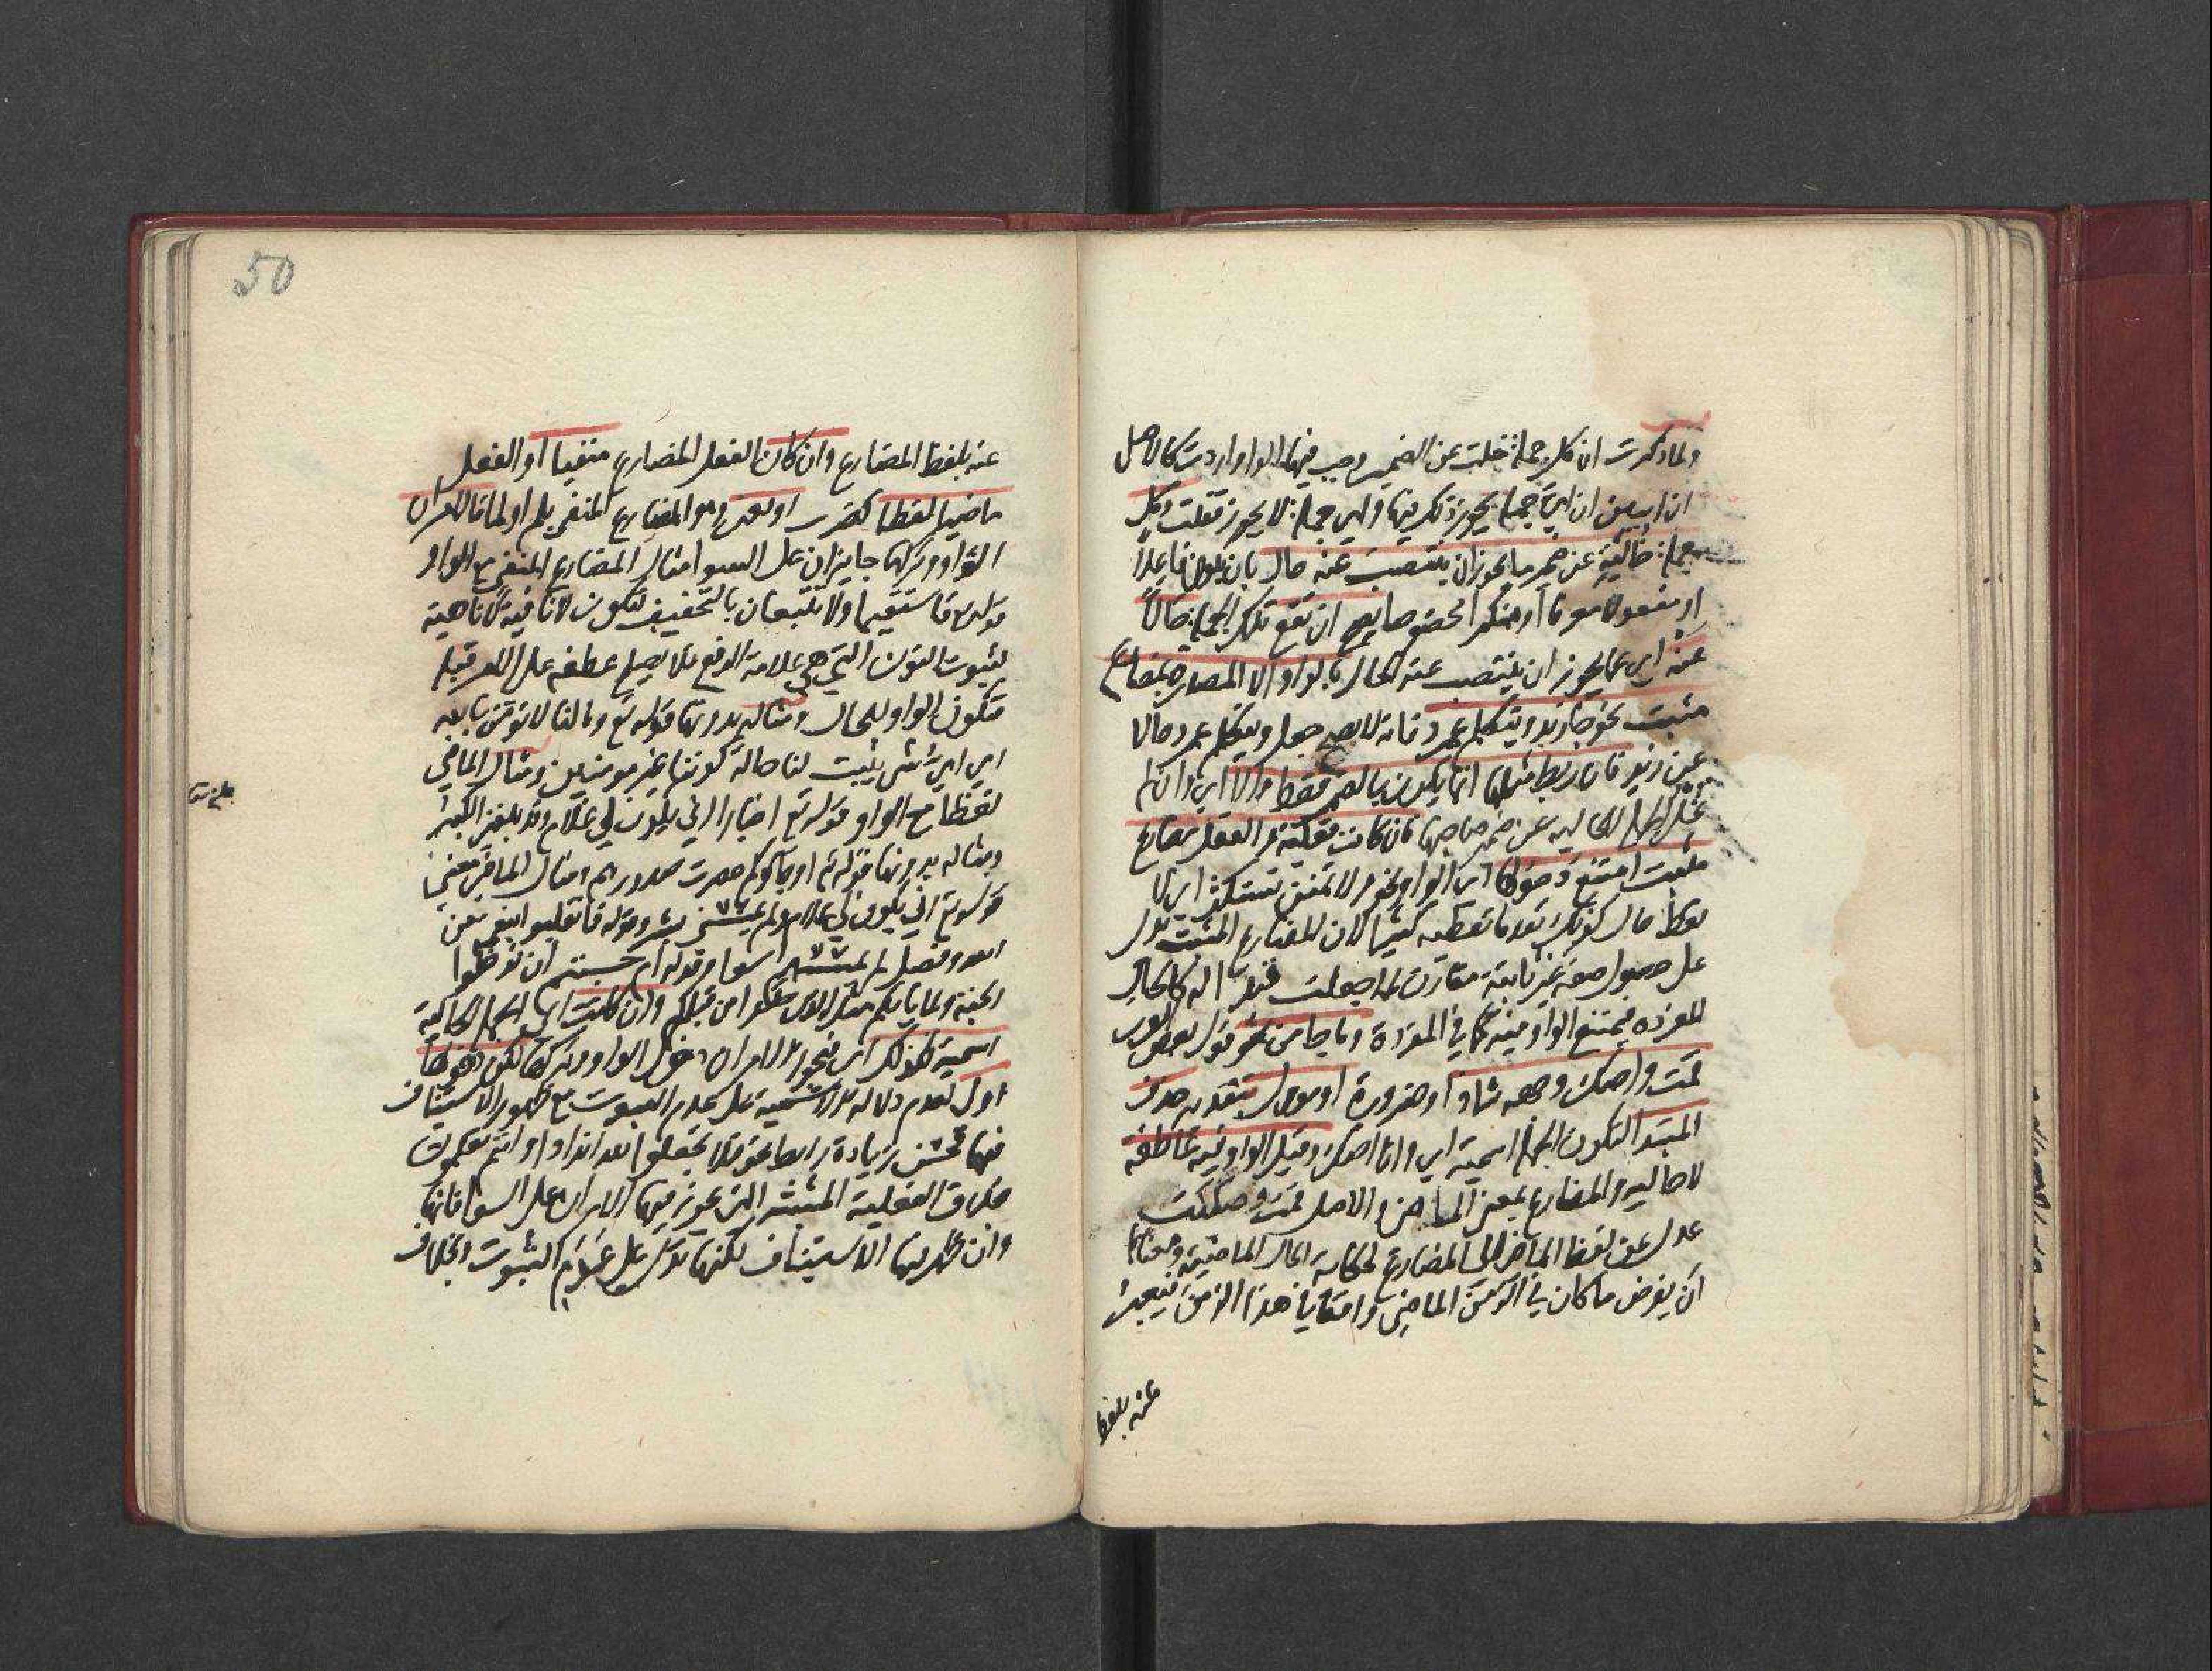 ولما ذكرت ان كل جملة خلت عن الضمير وجب فيها الواو اردت كالاصل
ان ابين ان اي جملة يجوز ذلك فيها واي جملة لا يجوز فقلت وكل
جملة خالية عن ضمير ما يجوز ان ينتصب عنه حال بان يكون فاعلا
او مفعولا معرفا او منكرا مخصوصا يصح ان تقع تلك الجملة حالا
عنه اي عما يجوز ان ينتصب عنه الحال بالواو الا المصدرة بمضارع
مثبت نحو جا زيد ويتكلم عمرو فانه لا يصح جعل ويتكلم عمرو حالا
عن زيد فان ربط مثلها انما يكون بالضمير فقط والا اي وان لم
تخل الجملة الحالية عن ضمير صاحبها فان كانت فعلية والفعل مضارع
مثبت امتنع دخولها اي الواو نحو ولا تمنن تستكثر اي لا
تعط حال كونك تعد ما تعطيه كثيرا لان المضارع المثبت يدل
على حصول صفة غير ثابتة مقارن لما جعلت قيدا له كالحال
المفردة فيمتنع الواو فيه كما في المفردة وما جا من نحو قول بعض العرب
قمت واصك وجهه شاذ او ضرورة او موول بتقدير حذف
المبتدا لتكون الجملة اسمية اي وانا اصك وقيل الواو فيه عاطفة
لا حالية والمضارع بمعنى الماضي والاصل قمت وصككت
عدل عن لفظ الماضي الى المضارع لحكاية الحال الماضية ومعناها
ان يفرض ما كان في الزمن الماضي واقعا في هذا الزمن فيعبر
عنه بلفظ
50
عنه بلفظ المضارع وان كان الفعل المضارع منفيا او الفعل
ماضيا لفظا كضرب او معنى وهو المضارع المنفي بلم او لما فالامران
الواو وتركها جايزان على السوا مثال المضارع المنفي مع الواو
قوله فاستقيما ولا تتبعان بالتخفيف لتكون لا نافية لا ناهية
لثبوت النون التي هي علامة الرفع فلا يصح عطفه على الامر قبله
فتكون الواو للحال ومثاله بدونها قوله تع وما لنا لا نومن بالله
اي اي شي يثبت لنا حالة كوننا غير مومنين ومثال الماضي
لفظا مع الواو قوله تع اخبارا اني يكون لي غلام وقد بلغني الكبر
ومثاله بدونها قوله تع او جاوكم حصرت صدورهم ومثال الماضي معنى
قوله تع اني يكون لي غلام ولم يمسسني بشر وقوله فانقلبوا بنعمة من
الله وفضل لم يمسسهم سوا وقوله ام حسبتم ان تدخلوا
الجنة ولما ياتكم مثل الذين خلوا من قبلكم وان كانت اي الجملة الحالية
اسمية فكذلك اي فيجوز الامران دخول الواو وتركها لكن دخولها
اولى لعدم دلالة الاسمية على عدم الثبوت مع ظهور الاستيناف
فيها فحسن زيادة رابط نحو فلا تجعلوا لله اندادا وانتم تعلمون
بخلاف الفعلية المثبتة التي يجوز فيها الامران على السوا فانها
وان ظهر فيها الاستيناف لكنها تدل على عدم الثبوت بخلاف